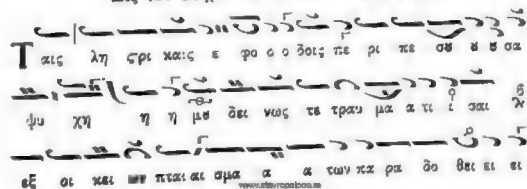 Ταις λη ςρι καις ε φο ο ο δοις πε ρι πε σȣ ȣ ȣ σα
ψυ χη η η μȣ δει νως τε τραυ μα α τι ι σαι
εξ οι κει ων πται αι σμα α α των πα ρα δο θει ει ει
www.stavropoleos.ro